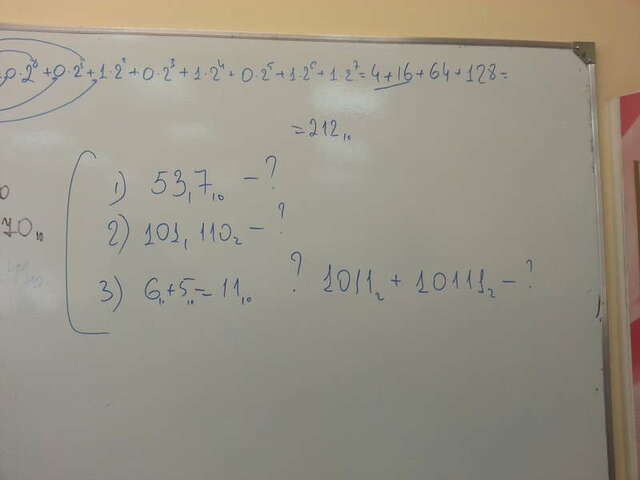 0·2⁰+0·2¹+1·2²+0·2³+1·2⁴+0·2⁵+1·2⁶+1·2⁷=4+16+64+128=
=212₁₀
1) 53,7₁₀ – ?
70₁₀
2) 101,110₂ – ?
3) 6₁₀+5₁₀=11₁₀ ? 1011₂ + 10111₂ – ?